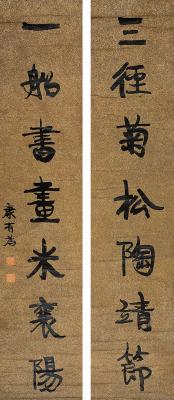 三徑菊松陶靖節
一船書畫米襄陽
康有為